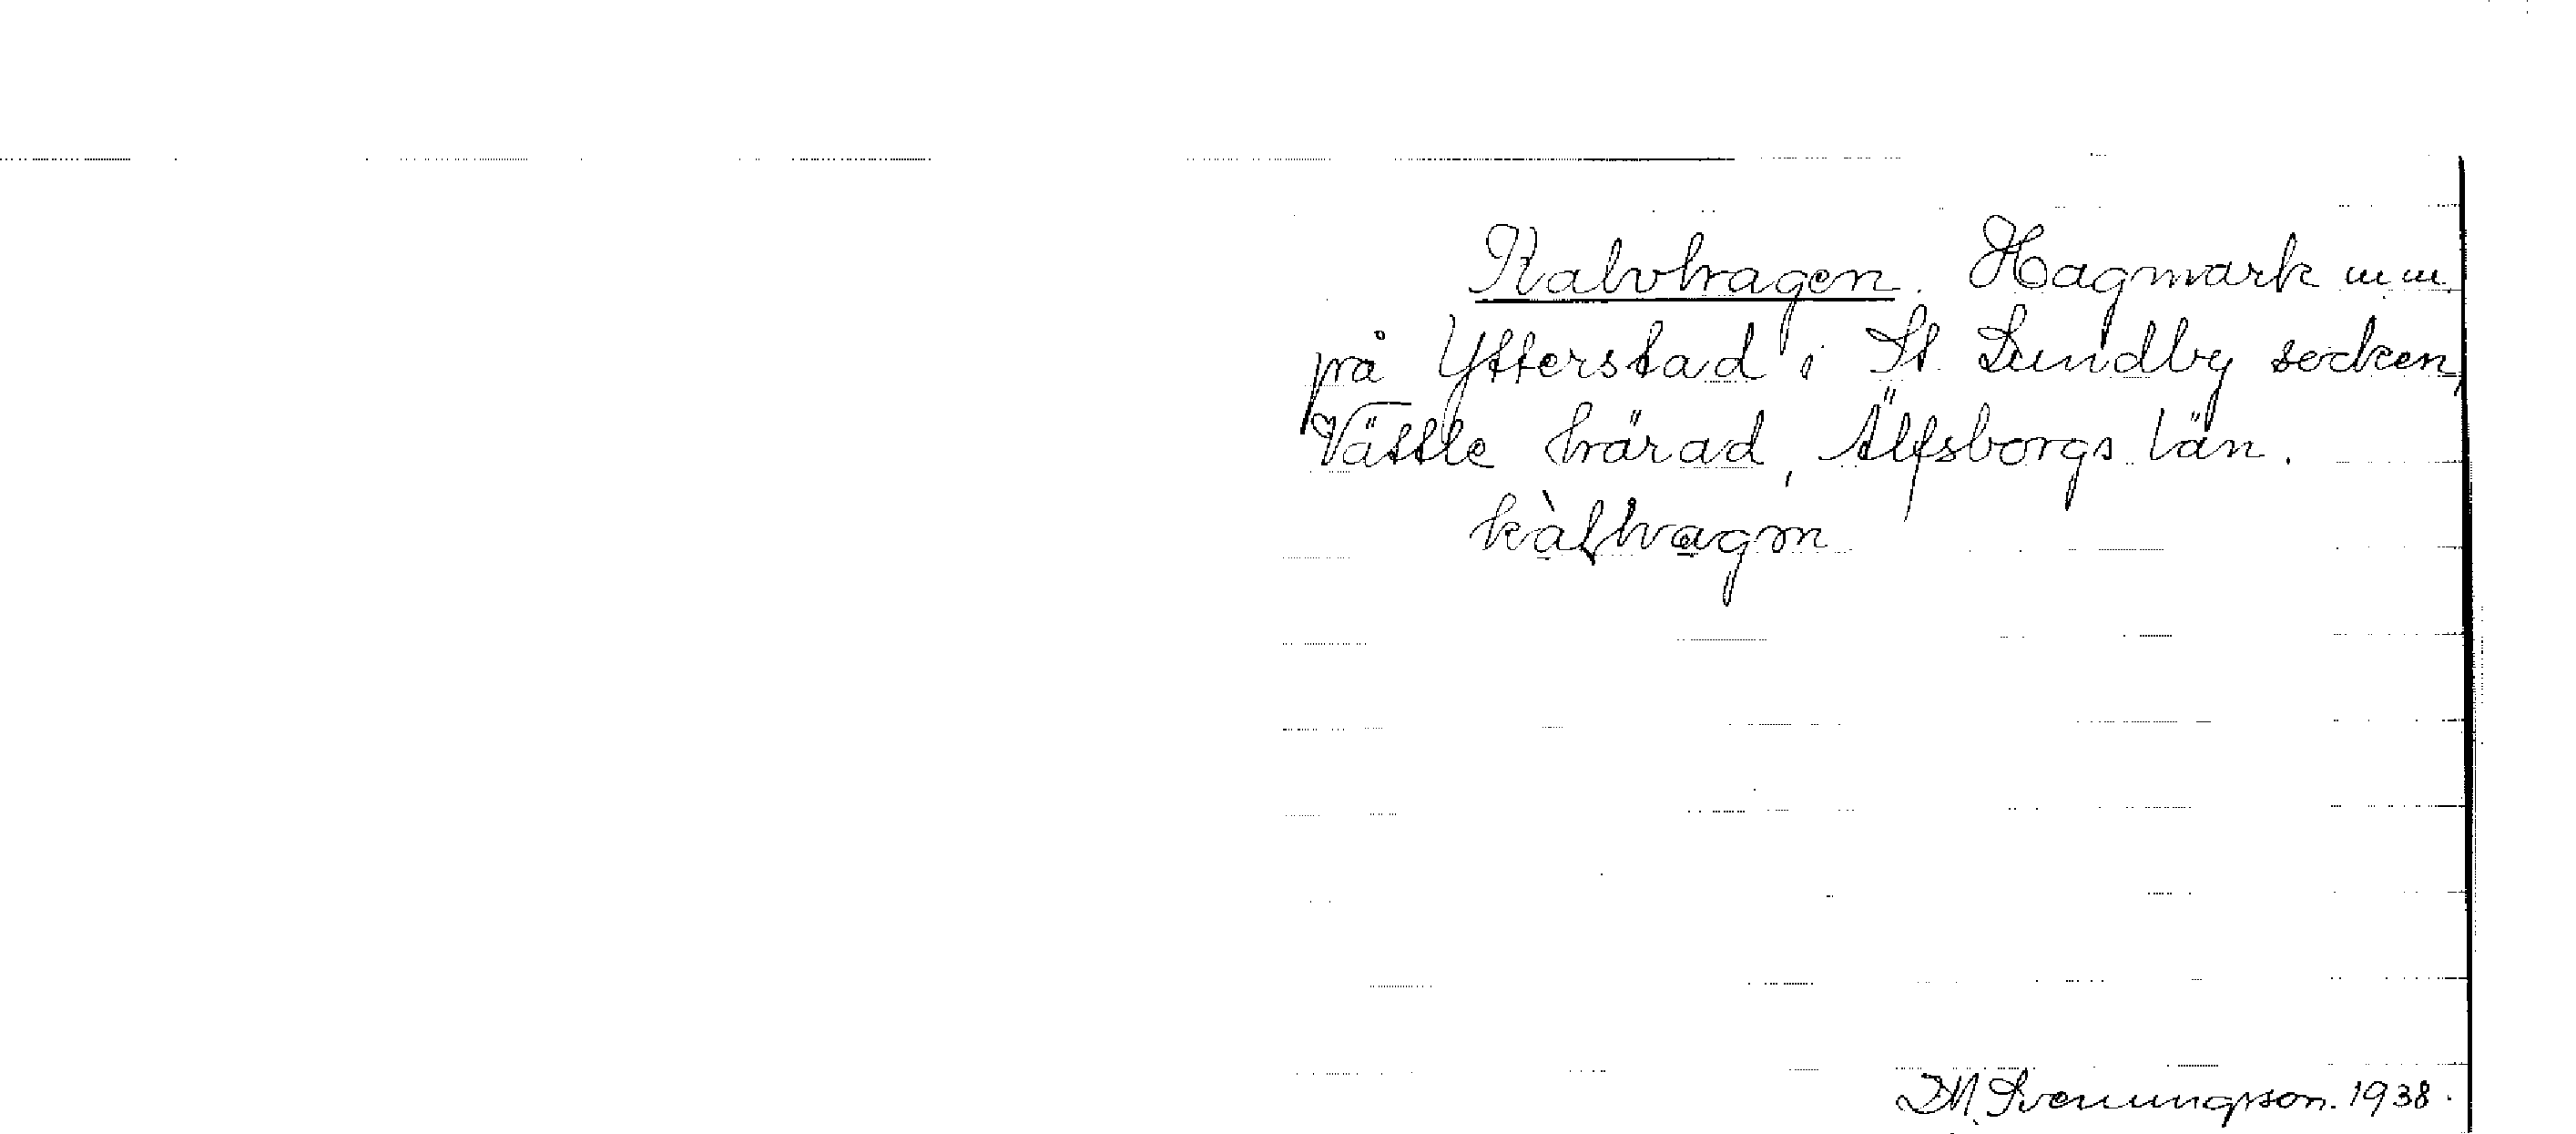 Kalvhagen. Hagmark m.m.
på Ytterstad i St. Lundby socken,
Vättle härad, Älfsborgs län.
kàlhagen
D.M. Svenningsson. 1938.